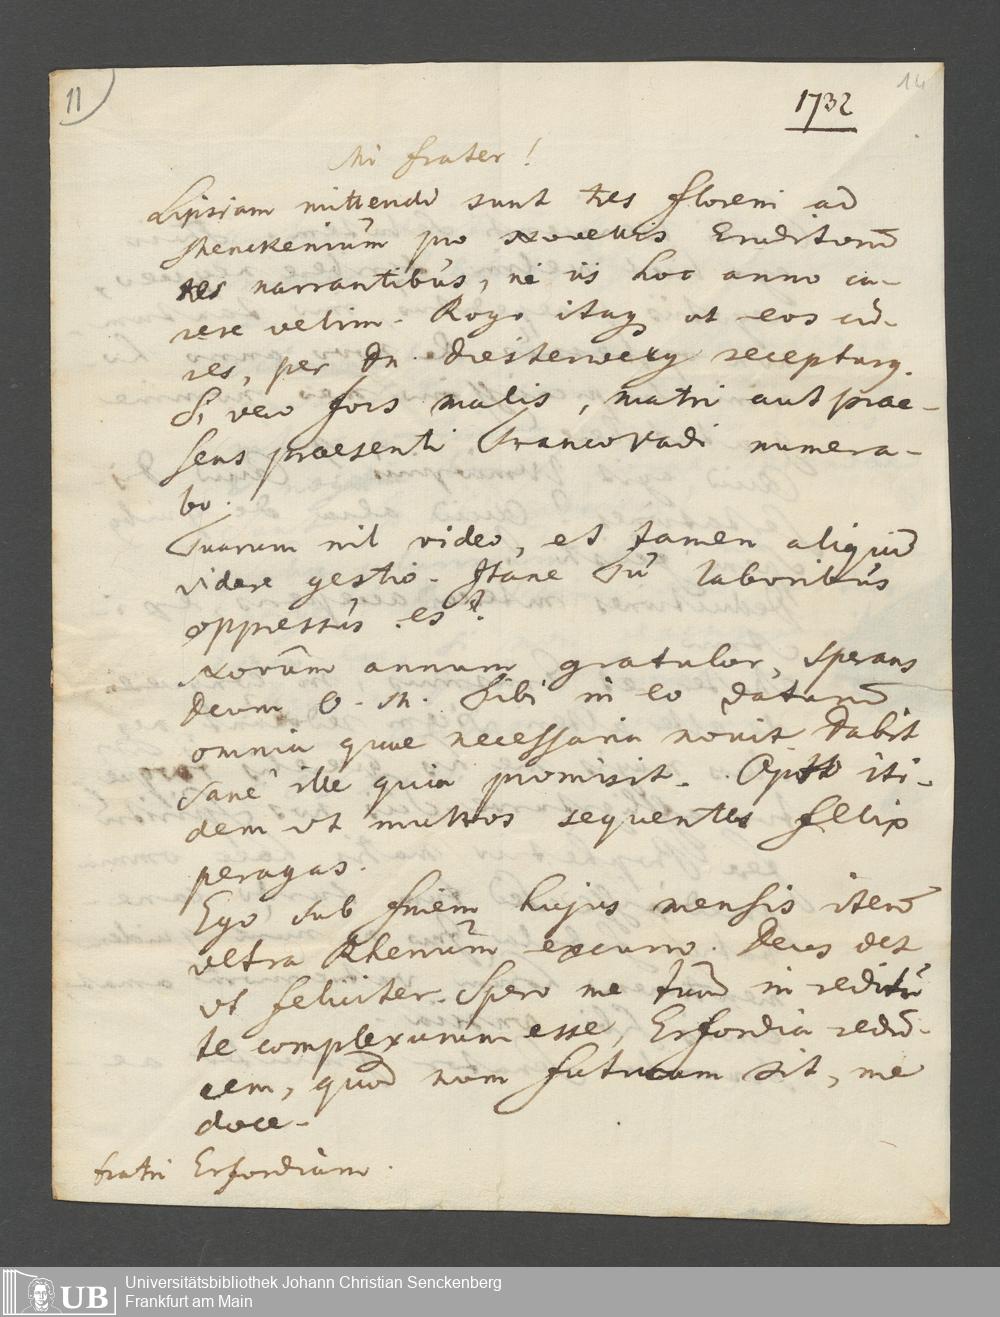 11
14
1732
Mi frater!
Lipsiam mittendi sunt tres floreni ad
Menckenium pro Novellis Eruditorū
res narrantibus, ne iis hoc anno ca-
rere velim. Rogo itaqz ut eos cū-
res, per Dn. Diesterweg
Si vero fors malis, matri aut prae-
sens praesenti Francovadi numera-
bo.
Tuarum nil video, et tamen aliquid
videre gestio. Itane Tu laboribus
oppressus es?
Novum annum gratulor, sperans
Deum O. M. Tibi in eo daturū
omnia quae necessaria novit. Dabit
sane ille quia promisit. Opto iti-
dem ut multos sequentes felix
peragas.
Ego sub finem hujus mensis iterū
ultra Rhenum excurro. Deus det
ut feliciter. Spero me tum in reditu
te complexurum esse, Erfordia redu-
cem, quod num futurum sit, me
doce.
fratri Erfordiam.
UB
Universitätsbibliothek Johann Christian Senckenberg
Frankfurt am Main